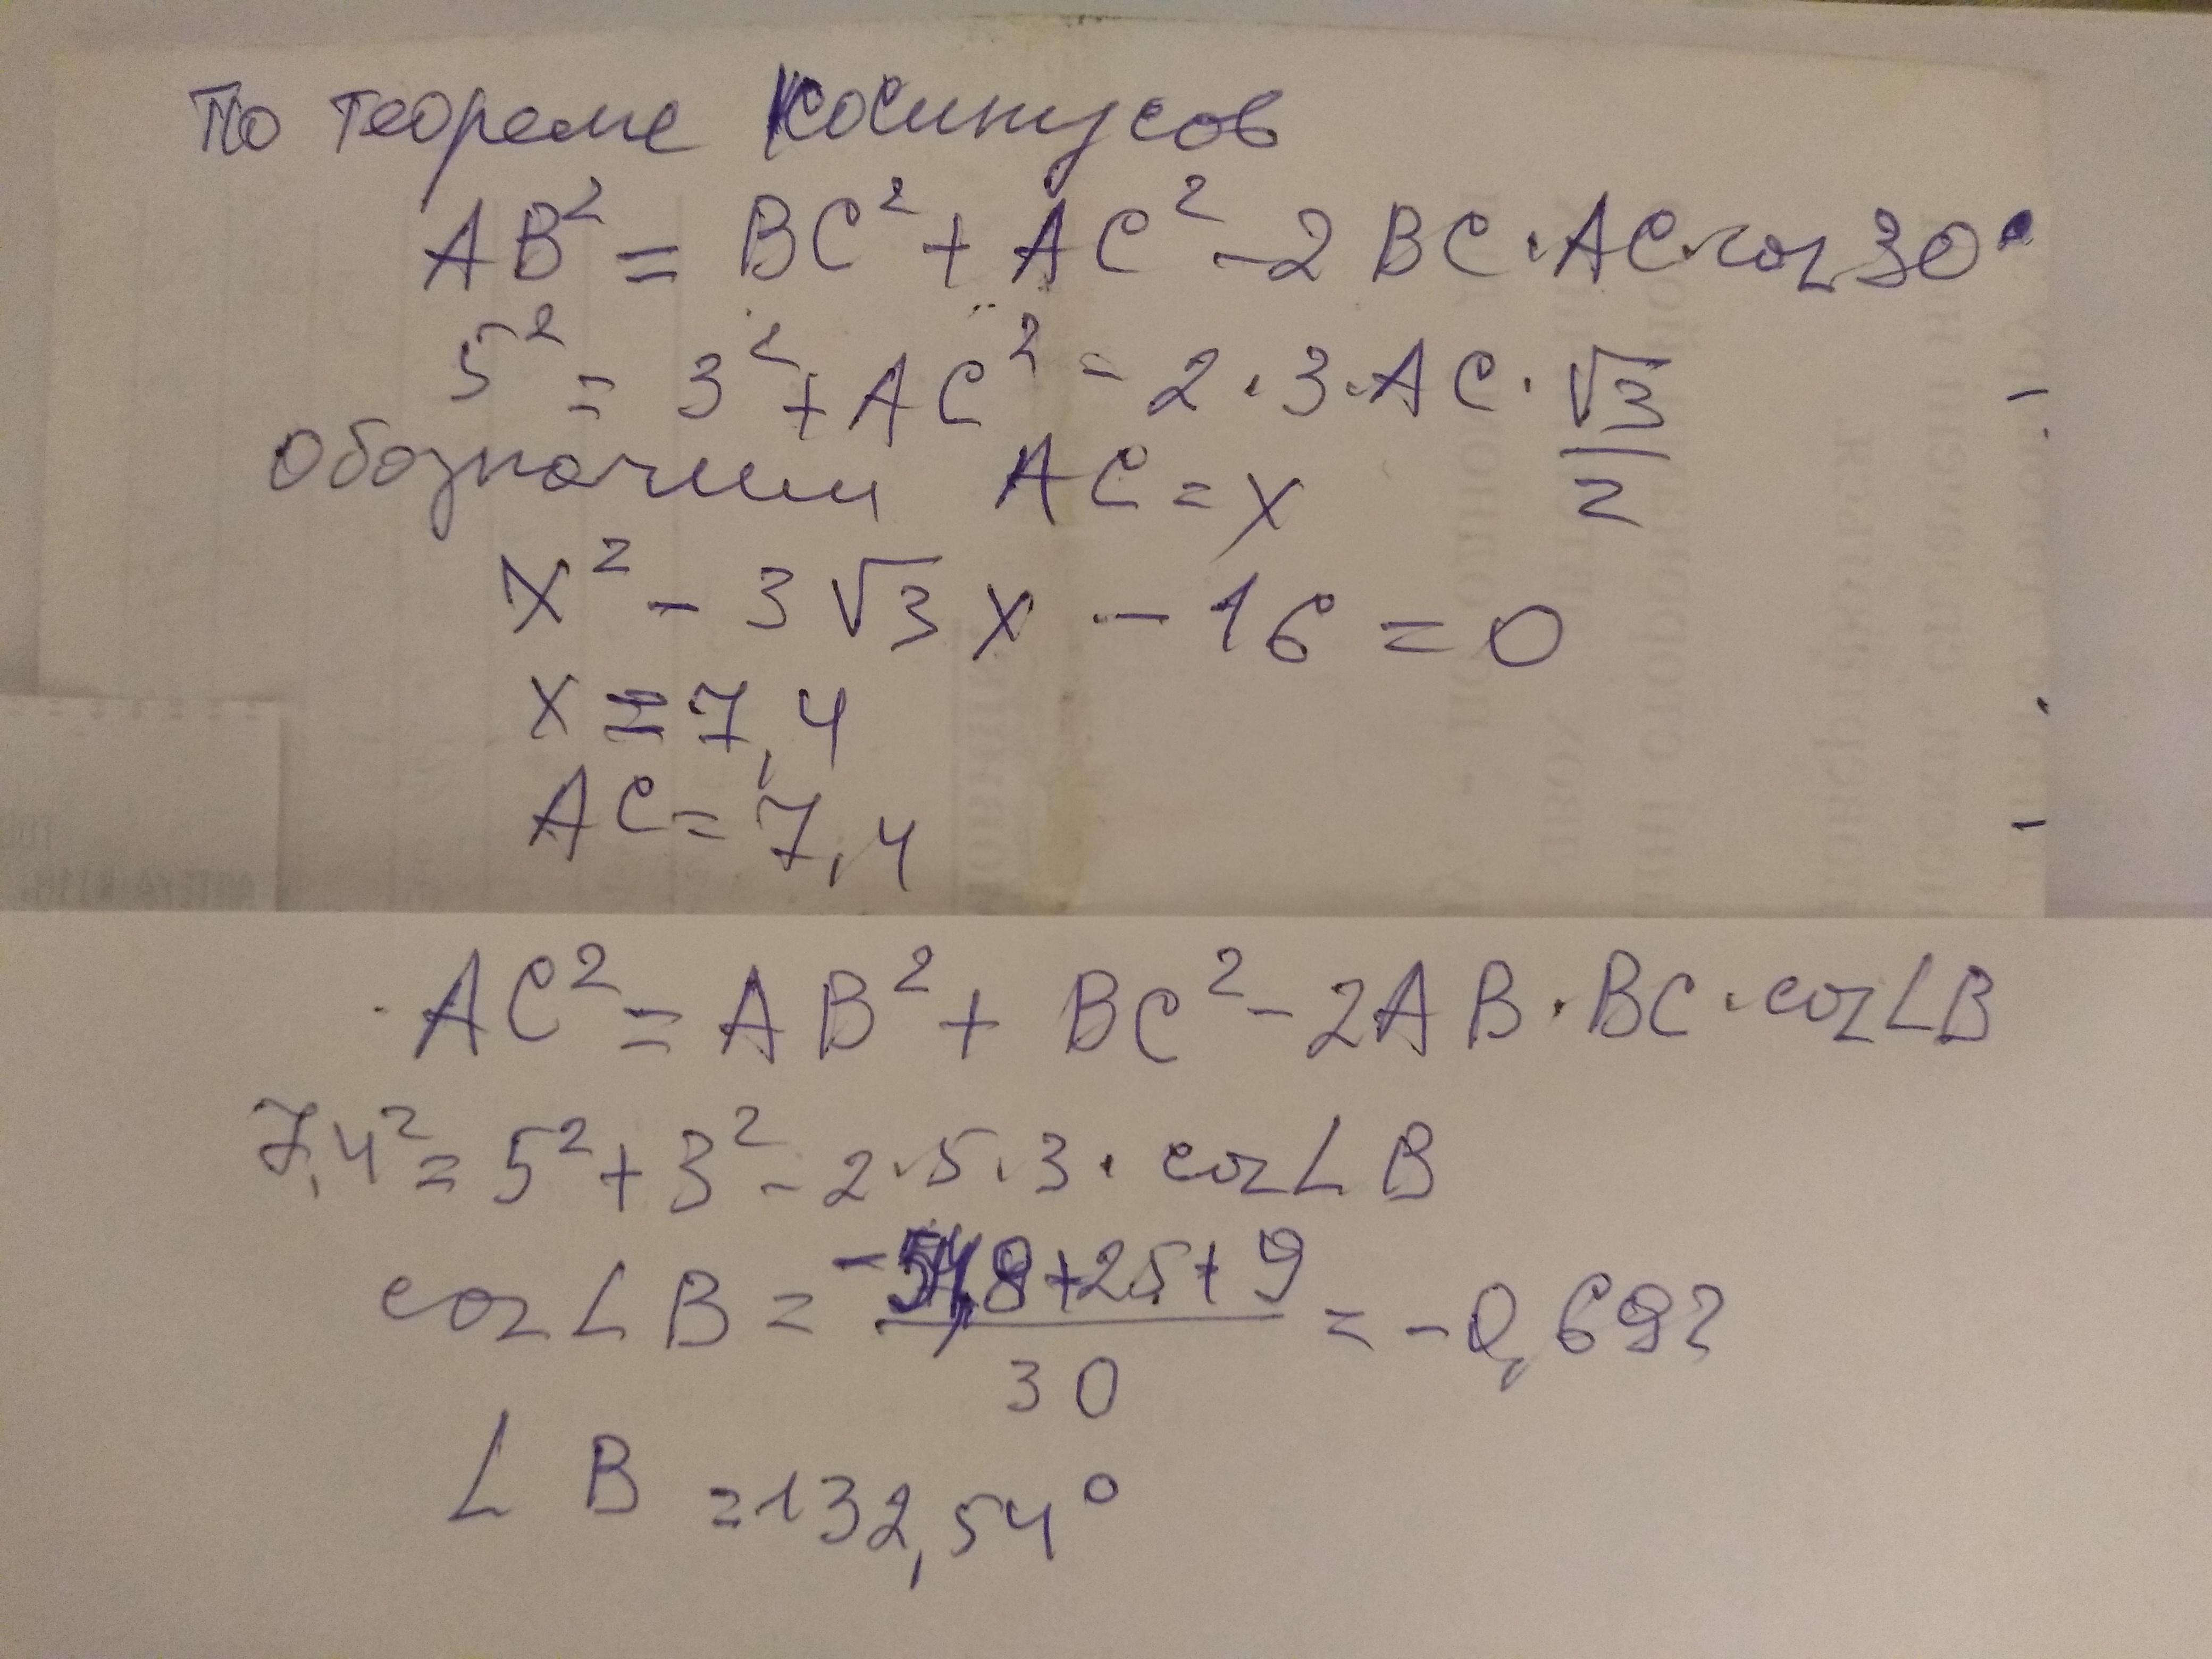 По теореме косинусов
AB² = BC² + AC² - 2 BC · AC · cos 30°
5² = 3² + AC² - 2 · 3 · AC · √3/2
Обозначим AC = x
x² - 3√3 x - 16 = 0
x = 7,4
AC = 7,4
AC² = AB² + BC² - 2AB · BC · cos∠B
7,4² = 5² + 3² - 2 · 5 · 3 · cos∠B
cos∠B = (-54,8 + 25 + 9)/30 = -0,692
∠B = 132,54°